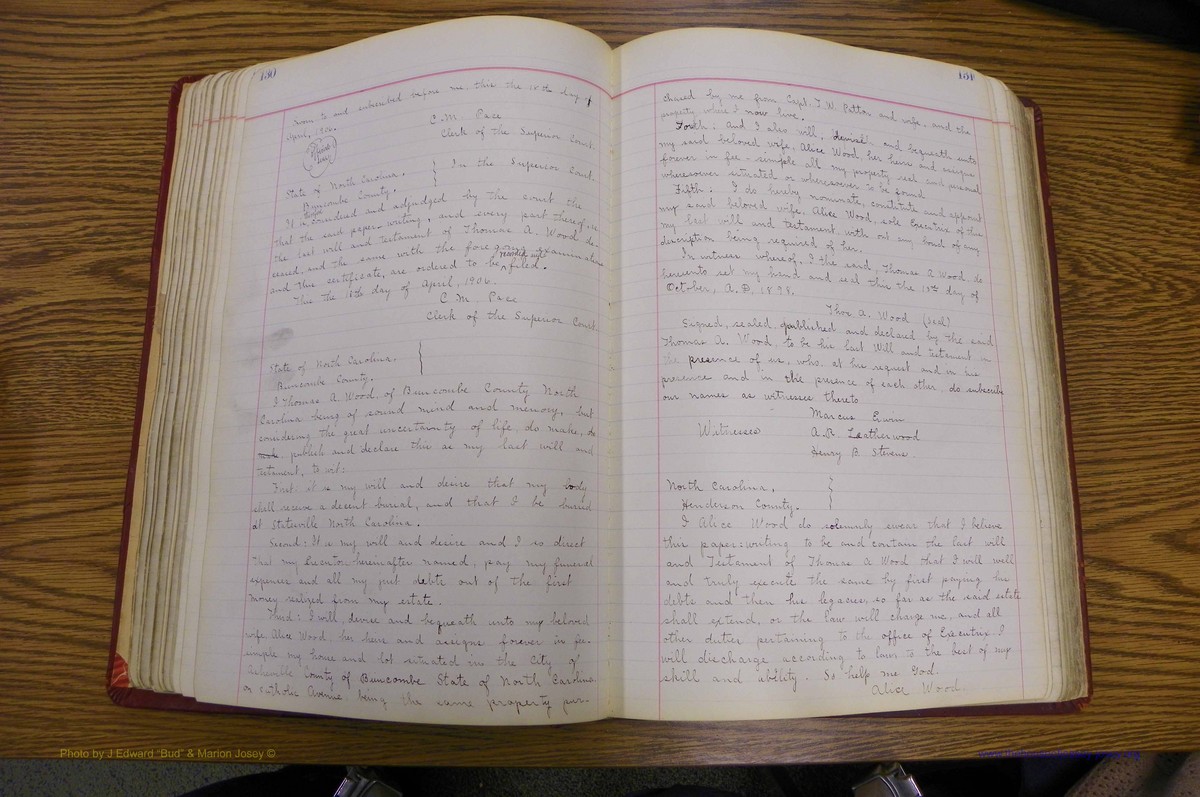 130
Sworn to and subscribed before me, this the 18th day of
April, 1906.
C. M. Pace
Clerk of the Superior Court.
State of North Carolina,
Buncombe County.
In the Superior Court.
It is therefore considered and adjudged by the court the
that the said paper writing, and every part thereof, is
the last will and testament of Thomas A. Wood de-
ceased, and the same with the foregoing examination
and this certificate, are ordered to be recorded and filed.
This the 18th day of April, 1906.
C. M. Pace
Clerk of the Superior Court
State of North Carolina,
Buncombe County.
I Thomas A Wood, of Buncombe County North
Carolina being of sound mind and memory, but
considering the great uncertainty of life, do make, do
publish and declare this as my last will and
testament, to wit:
First: it is my will and desire that my body
shall receive a decent burial, and that I be buried
at Statesville North Carolina.
Second: It is my will and desire and I so direct
that my Executor hereinafter named, pay my funeral
expenses and all my just debts out of the first
money realized from my estate.
Third: I will, devise and bequeath unto my beloved
wife Alice Wood, her heirs and assigns forever in fee-
simple my house and lot situated in the City of
Asheville County of Buncombe State of North Carolina
on Catholic Avenue being the same property pur-
131
chased by me from Capt. T. W. Patton and wife, and the
property where I now live.
Forth: And I also will, devise, and bequeath unto
my said beloved wife, Alice Wood, her heirs and assigns
forever in fee-simple all my property real and personal
wheresoever situated or wheresoever to be found.
Fifth: I do hereby nominate, constitute and appoint
my said beloved wife, Alice Wood, sole Executrix of this
my last will and testament, with out any bond of any
description being required of her.
In witness whereof, I the said, Thomas A Wood, do
hereunto set my hand and seal this the 13th day of
October, A.D. 1898.
Thos A. Wood (seal)
Signed, sealed, published and declared by the said
Thomas A. Wood, to be his last Will and testament in
the presence of us, who, at his request and in his
presence and in the presence of each other, do subscribe
our names as witnesses thereto
Marcus Erwin
Witnesses A. R. Leatherwood
Henry B Stevens.
North Carolina,
Henderson County.
I Alice Wood do solemnly swear that I believe
this paper-writing to be and contain the last will
and Testament of Thomas A Wood that I will well
and truly execute the same by first paying his
debts and then his legacies, so far as the said estate
shall extend, or the law will charge me, and all
other duties pertaining to the office of Executrix I
will discharge according to law, to the best of my
skill and ability. So help me God.
Alice Wood.
Photo by J Edward "Bud" & Marion Josey ©